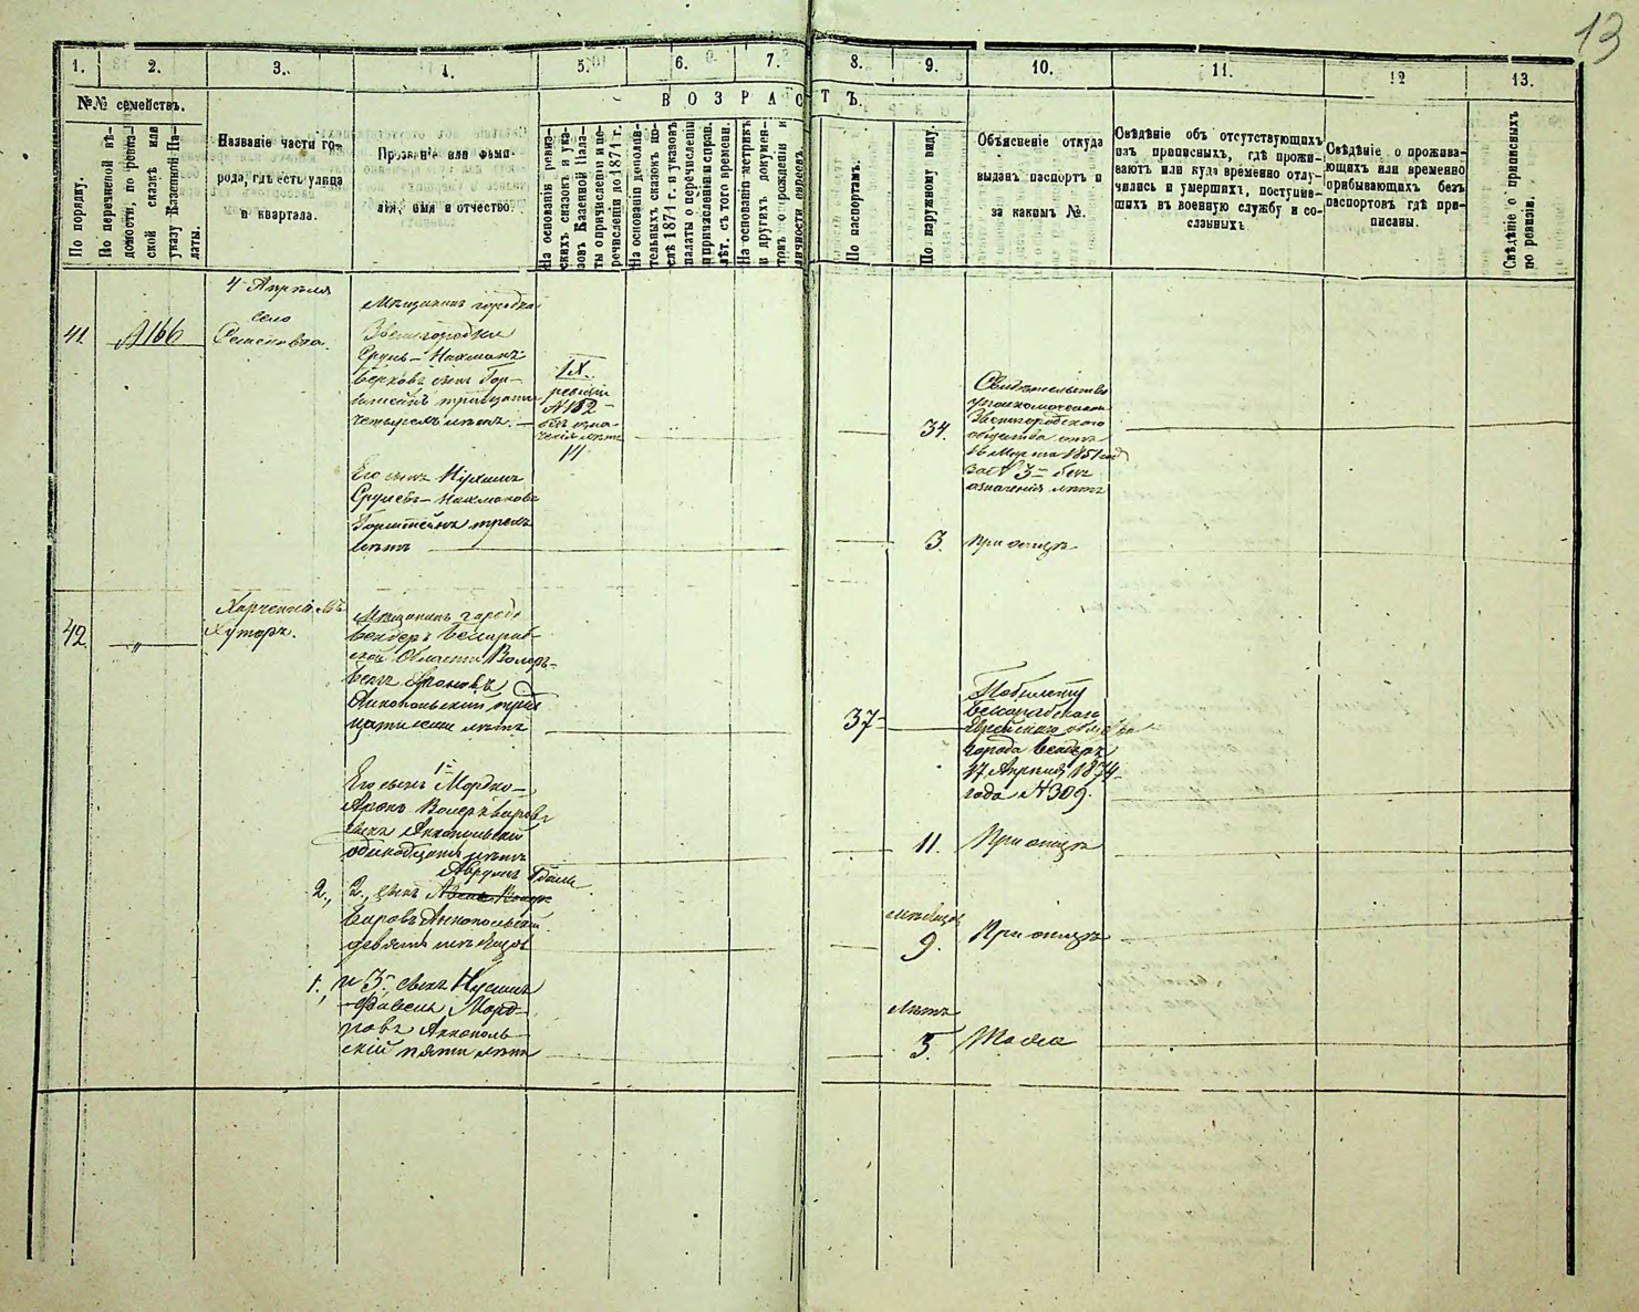 13
1. 2. 3. 4. 5. 6. 7. 8. 9. 10. 11. 12 13.
№№ семействъ.
ВОЗРАСТЪ.
По порядку.
По перечневой вѣ-
домости, по ревиз-
ской сказкѣ или
указу Казенной Па-
латы.
Названіе части го-
рода, гдѣ есть улица
и квартала.
Прозваніе или фами-
лія, имя и отчество.
На основаніи ревиз-
скихъ сказокъ и ука-
зовъ Казенной Пала-
ты о причисленіи и пе-
речисленіи до 1871 г.
На основаніи дополни-
тельныхъ сказокъ по-
слѣ 1871 г. и указовъ
палаты о перечисленіи
и причисленіи и справ.
лѣт. съ того времени.
На основаніи метрикъ
и другихъ докумен-
товъ о рожденіи и
личности евреевъ
По паспортамъ.
По наружному виду.
Объясненіе откуда
выданъ паспортъ и
за какимъ №.
Свѣдѣніе объ отсутствующихъ
изъ приписныхъ, гдѣ прожи-
ваютъ или куда временно отлу-
чились и умершихъ, поступив-
шихъ въ военную службу и со-
сланныхъ
Свѣдѣніе о прожива-
ющихъ или временно
прибывающихъ безъ
паспортовъ гдѣ при-
писаны.
Свѣдѣніе о приписныхъ
по ревизіи.
4 Апрѣля
село
Семеновка.
41.
№166
Мѣщанинъ городка
Звенигородки
Сруль-Нахманъ
Берковъ сынъ Гор-
тридцати
четырехъ лѣтъ.
IX.
ревизіи
№152
безъ озна-
ченія лѣтъ
34.
Свидѣтельство
Звенигородского
общества отъ
16 Марта 1851 год
за № 3 безъ
означенія лѣтъ
Его сынъ
Срулевъ-Нахмановъ
трехъ
лѣтъ
3. При отцѣ
42.
"
Хуторъ.
Мѣщанинъ города
Бендеръ Бессараб-
ской Области Волоръ-
Беръ
Анкопольскій трид
цати семи лѣтъ
37
По билету
Бессарабскаго
Еврейскаго общества
города Бендеръ
17 Апрѣля 1874
года №309.
Его сынъ 1й Мордко-
Аронъ
сынъ Анкопольскій
одинадцати лѣтъ
11. При отцѣ
Аврумъ
2., 2, сынъ
Беровъ Анкопольскій
девяти мѣсяцовъ
мѣсяцовъ
9. При отцѣ
1., и 3й сынъ Нусинъ
Файвель Морд-
ковъ Анкополь-
скій пяти лѣтъ
лѣтъ
5. Тоже